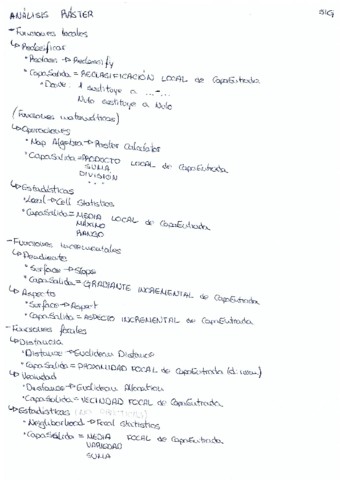 ANÁLISIS RÁSTER
SIG
- Funciones locales
↳ Reclasificar
* Reclass → Reclassify
* CapaSalida = RECLASIFICACIÓN LOCAL de CapaEntrada
* Donde: 1 sustituye a ... - ...
Nulo sustituye a Nulo
(Funciones matemáticas)
↳ Operaciones
* Map Algebra → Raster Calculator
* CapaSalida = PRODUCTO LOCAL de CapaEntrada
SUMA
DIVISIÓN
...
↳ Estadísticas
* Local → Cell Statistics
* CapaSalida = MEDIA LOCAL de CapaEntrada
MÁXIMO
RANGO
- Funciones incrementales
↳ Pendiente
* Surface → Slope
* CapaSalida = GRADIANTE INCREMENTAL de CapaEntrada
↳ Aspecto
* Surface → Aspect
* CapaSalida = ASPECTO INCREMENTAL de CapaEntrada
- Funciones focales
↳ Distancia
* Distance → Euclidean Distance
* CapaSalida = PROXIMIDAD FOCAL de CapaEntrada
↳ Vecindad
* Distance → Euclidean Allocation
* CapaSalida = VECINDAD FOCAL de CapaEntrada
↳ Estadísticas
* Neighborhood → Focal Statistics
* CapaSalida = MEDIA FOCAL de CapaEntrada
VARIEDAD
SUMA